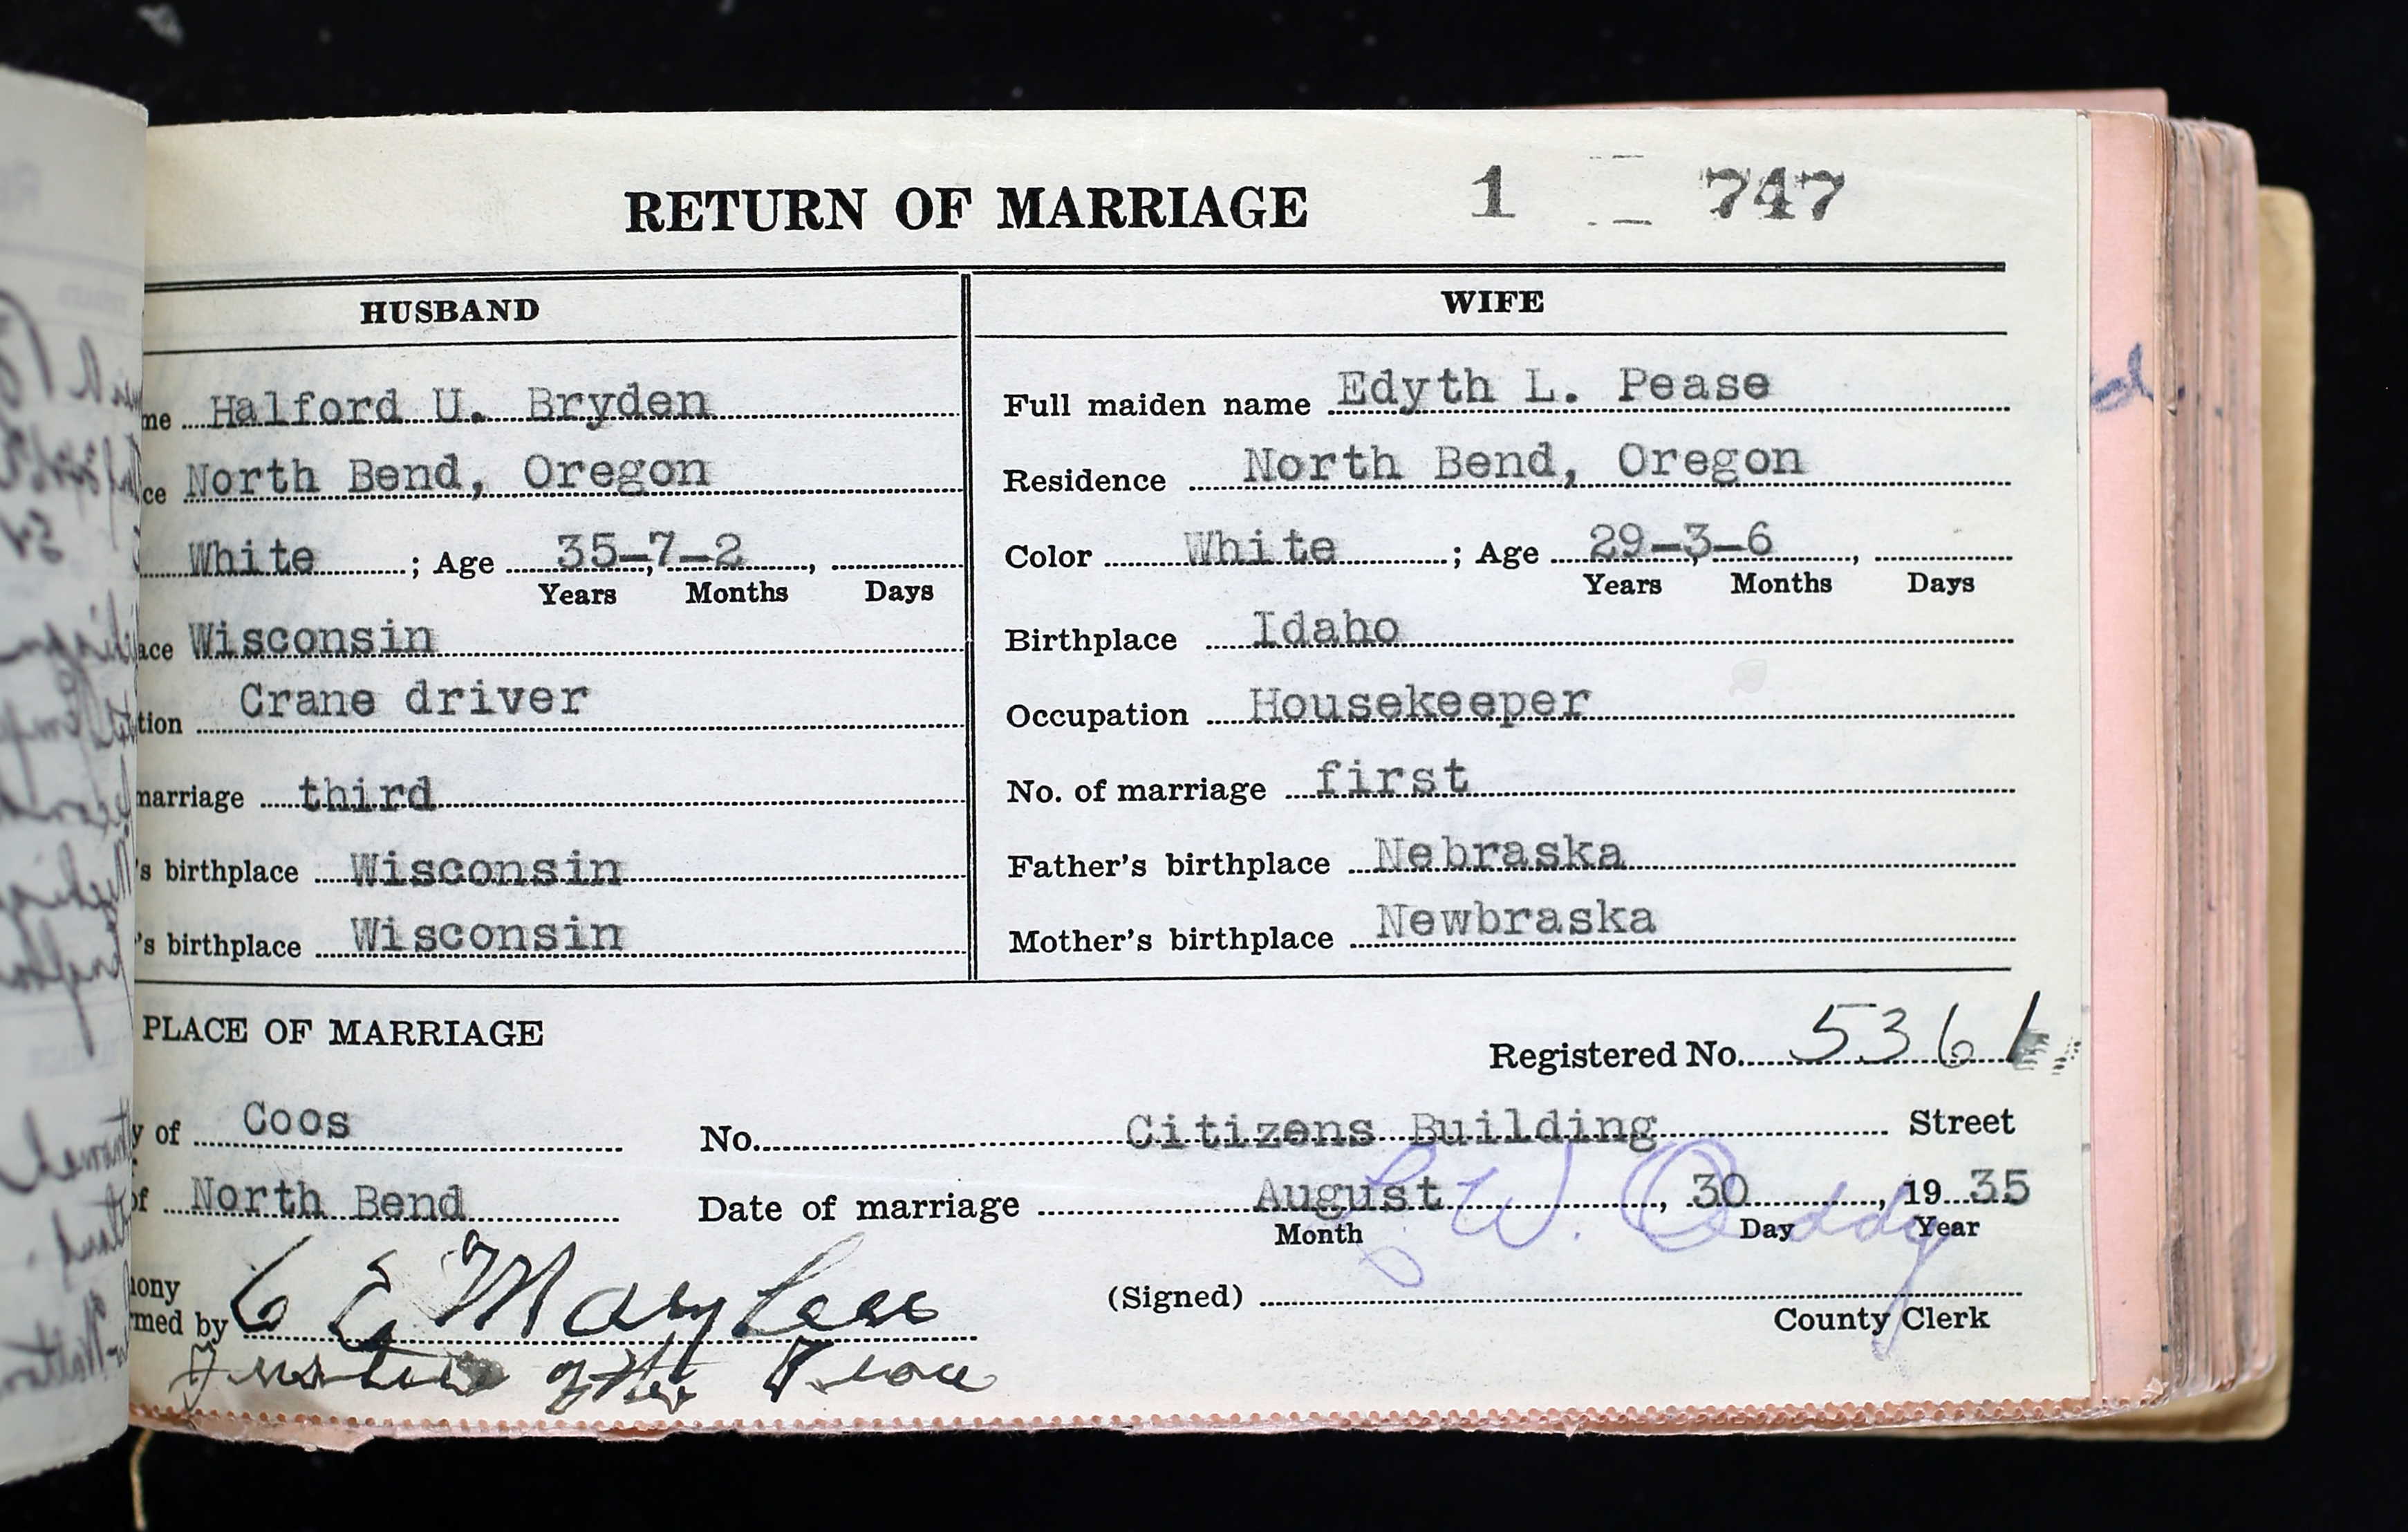 RETURN OF MARRIAGE 1 — 747
HUSBAND
me Halford U. Bryden
ce North Bend, Oregon
White ; Age 35-7-2
Years Months Days
ace Wisconsin
tion Crane driver
marriage third
's birthplace Wisconsin
's birthplace Wisconsin
WIFE
Full maiden name Edyth L. Pease
Residence North Bend, Oregon
Color White ; Age 29-3-6
Years Months Days
Birthplace Idaho
Occupation Housekeeper
No. of marriage first
Father's birthplace Nebraska
Mother's birthplace Newbraska
PLACE OF MARRIAGE
Registered No. 5361
y of Coos No. Citizens Building Street
of North Bend Date of marriage August, 30, 1935
Month Day Year
mony
rmed by C E Maybee
(Signed) L. W. Oddy
County Clerk
Justice of the Peace